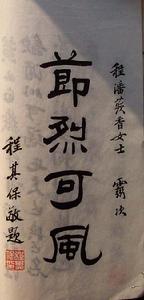 程潘蓂香女士 靈次
節烈可風
程其保敬題